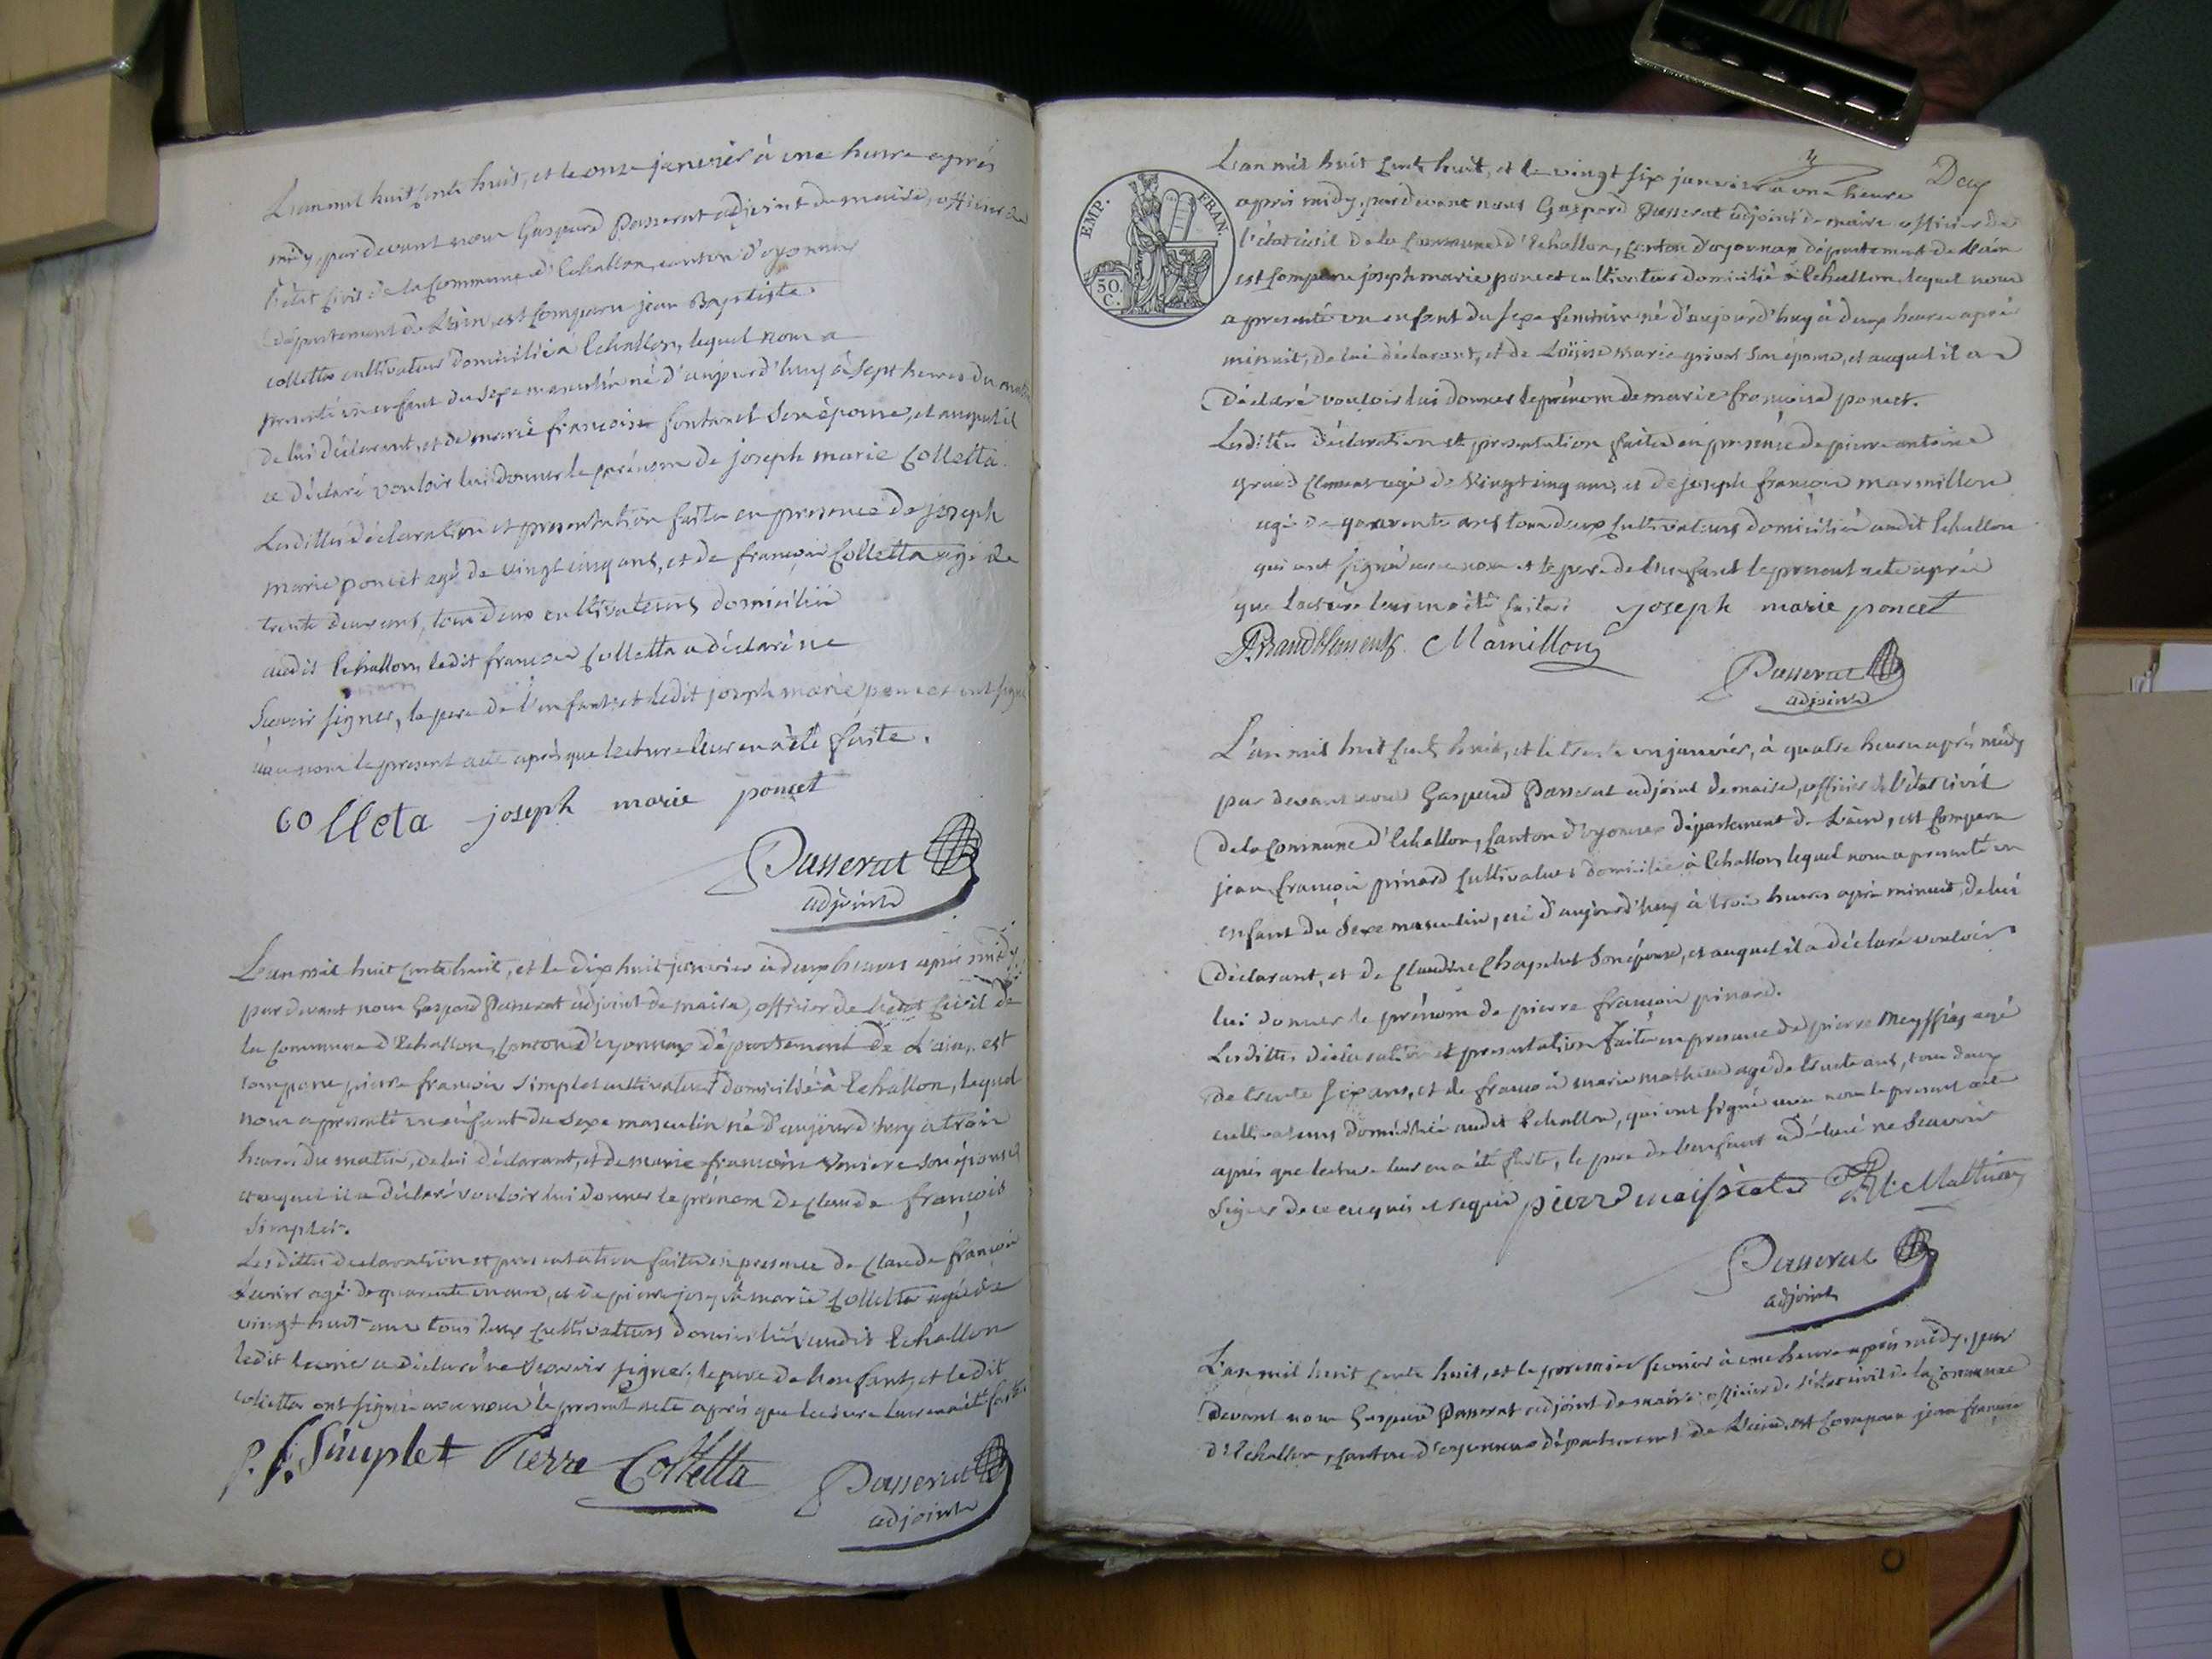 L'an mil huit cents huit, et le onze janvier à une heure après
midy, par devant nous Gaspard Passerat adjoint de maire, officier de
l'état civil de la Commune d'Echallon, canton d'oyonnax
département de L'ain, est comparu jean Baptiste
colletta cultivateur domicilié à Echallon, lequel nous a
presenté un enfant du sexe masculin né d'aujourd'huy à sept heures du matin
de lui déclarant, et de marie françoise fontanel son épouse, et auquel il
a déclaré vouloir lui donner le prénom de joseph marie Colletta.
Lesdittes déclaration et presentation faites en presence de joseph
marie poncet agé de vingt cinq ans, et de françois Colletta agé de
trente deux ans, tous deux cultivateurs domiciliés
audit Echallon, ledit françois Colletta a déclaré ne
scavoir signer, le pere de l'enfant et ledit joseph marie poncet ont signé
avec nous le present acte après que lecture leur en a été faite.
Colleta joseph marie poncet
Passerat
adjoint
L'an mil huit cents huit, et le dix huit janvier à deux heures après midy
par devant nous Gaspard Passerat adjoint de maire, officier de l'état civil de
la commune d'Echallon, canton d'oyonnax département de L'ain, est
comparu pierre françois Simplet cultivateur domicilié à Echallon, lequel
nous a presenté un enfant du sexe masculin né d'aujourd'huy à trois
heures du matin, de lui déclarant, et de marie françoise son épouse
et auquel il a déclaré vouloir lui donner le prénom de claude françois
Simplet.
Lesdittes declaration et presentation faites en presence de claude françois
agé de quarente un ans, et de pierre joseph marie Colletta agé de
vingt huit ans tous deux cultivateurs domiciliés audit Echallon
ledit a déclaré ne scavoir signer, le pere de l'enfant, et ledit
colletta ont signé avec nous le present acte après que lecture leur en a été faite
p. f. Simplet Pierre Colletta
Passerat
adjoint
Deux
L'an mil huit cents huit, et le vingt six janvier à une heure
après midy, par devant nous Gaspard Passerat adjoint de maire officier de
l'état civil de la Commune d'Echallon, canton d'oyonnax département de L'ain
est comparu joseph marie poncet cultivateur domicilié à Echallon, lequel nous
a presenté un enfant du sexe feminin né d'aujourd'huy à deux heures après
minuit, de lui déclarant, et de Loüise marie grivet son épouse, et auquel il a
déclaré vouloir lui donner le prénom de marie françoise poncet.
Lesdittes déclaration et presentation faites en presence de pierre antoine
grand clement agé de vingt cinq ans, et de joseph françois marmillon
agé de quarente ans tous deux cultivateurs domiciliés audit Echallon
qui ont signé avec nous et le pere de l'enfant le present acte après
que lecture leur en a été faite. joseph marie poncet
Marmillon
Passerat
adjoint
EMP. FRAN.
50.
C.
L'an mil huit cents huit, et le trente un janvier, à quatre heures après midy
par devant nous Gaspard Passerat adjoint de maire, officier de l'état civil
de la commune d'Echallon, canton d'oyonnax département de L'ain, est comparu
jean françois pinard cultivateur domicilié à Echallon, lequel nous a presenté un
enfant du sexe masculin, né d'aujourd'huy à trois heures après minuit, de lui
déclarant, et de claudine Chapelut son épouse, et auquel il a déclaré vouloir
lui donner le prénom de pierre françois pinard.
Lesdittes déclaration et presentation faites en presence de pierre agé
de trente six ans, et de françois marie mathieu agé de trente ans, tous deux
cultivateurs domiciliés audit Echallon, qui ont signé avec nous le present acte
après que lecture leur en a été faite, le pere de l'enfant a déclaré ne scavoir
signer de ce enquis et requis pierre
Passerat
adjoint
L'an mil huit cents huit, et le premier fevrier à une heure après midy, par
devant nous Gaspard Passerat adjoint de maire officier de l'état civil de la commune
d'Echallon, canton d'oyonnax département de L'ain, est comparu jean françois